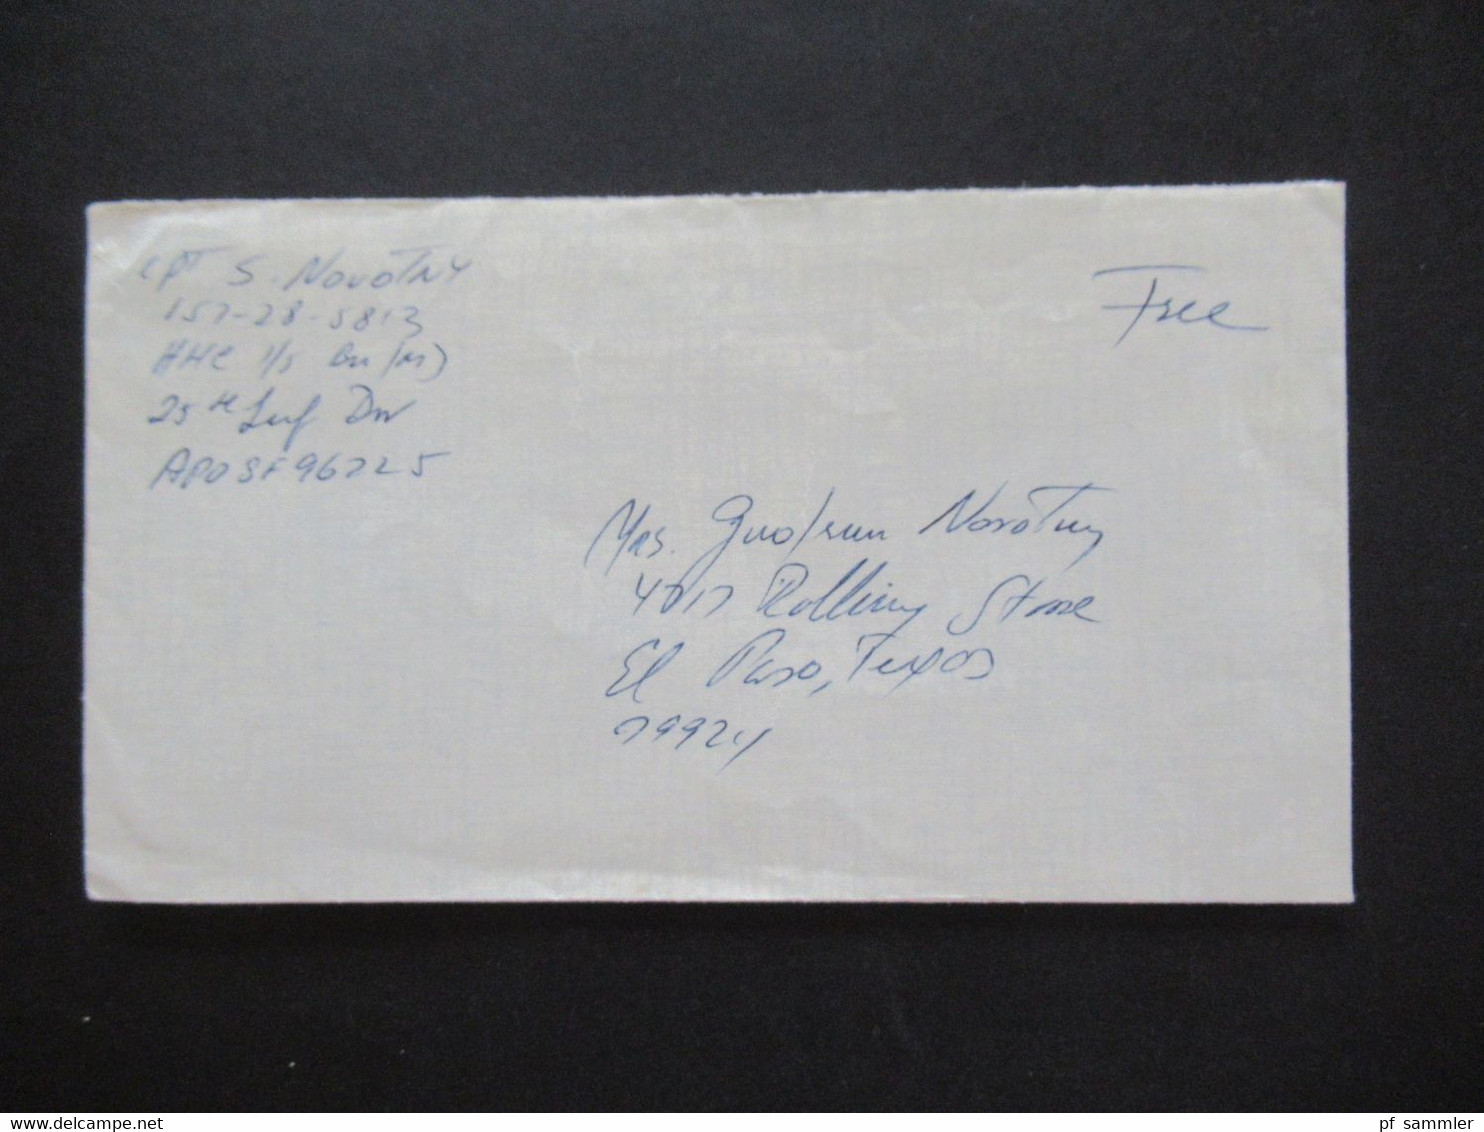 CPT S. Novotny
157-28-5813
HHC 1/5 Bn (M)
25th Inf Div
APO SF 96225
Free
Mrs. Gudrun Novotny
4717 Rolling Stone
El Paso, Texas
79924
delcampe.net
pf_sammler